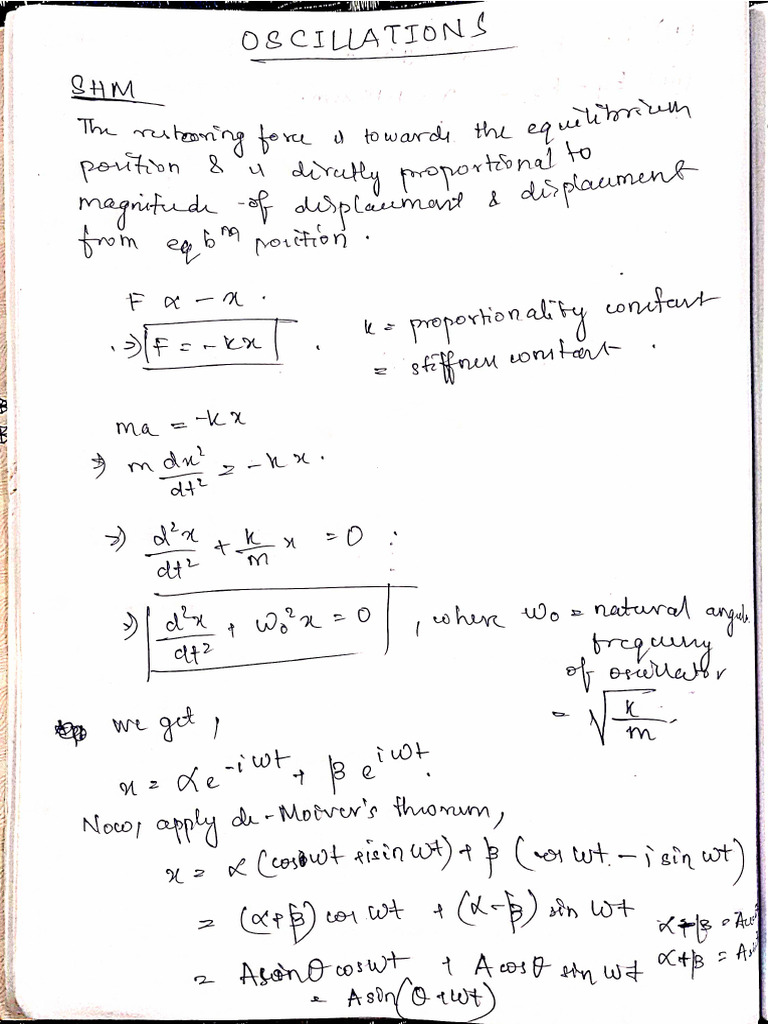 OSCILLATIONS
SHM
The restoring force is towards the equilibrium
position & is directly proportional to
magnitude of displacement & displacement
from eqbᵐ position.
F ∝ - x.
⇒ F = - kx
k = proportionality constant
= stiffness constant.
ma = -kx
⇒ m dx²/dt² = - kx.
⇒ d²x/dt² + k/m x = 0
⇒ d²x/dt² + ω₀²x = 0, where ω₀ = natural angular
frequency
of oscillator
= √k/m.
we get,
x = αe^-iωt + βe^iωt.
Now, apply de-Moiver's theorem,
x = α (cosωt + isin ωt) + β (cos ωt - i sin ωt)
= (α+β) cos ωt + (α-β) sin ωt
α-β =
α+β =
= Asinθ cosωt + A cosθ sin ωt
= Asin(θ+ωt)